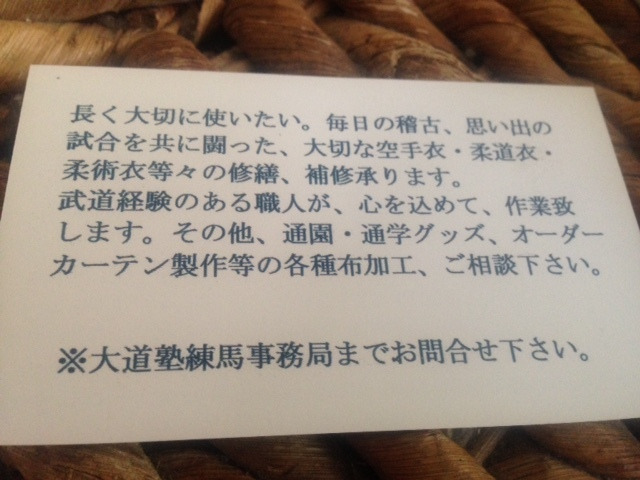 長く大切に使いたい。毎日の稽古、思い出の
試合を共に闘った、大切な空手衣・柔道衣・
柔術衣等々の修繕、補修承ります。
武道経験のある職人が、心を込めて、作業致
します。その他、通園・通学グッズ、オーダー
カーテン製作等の各種布加工、ご相談下さい。
※大道塾練馬事務局までお問合せ下さい。